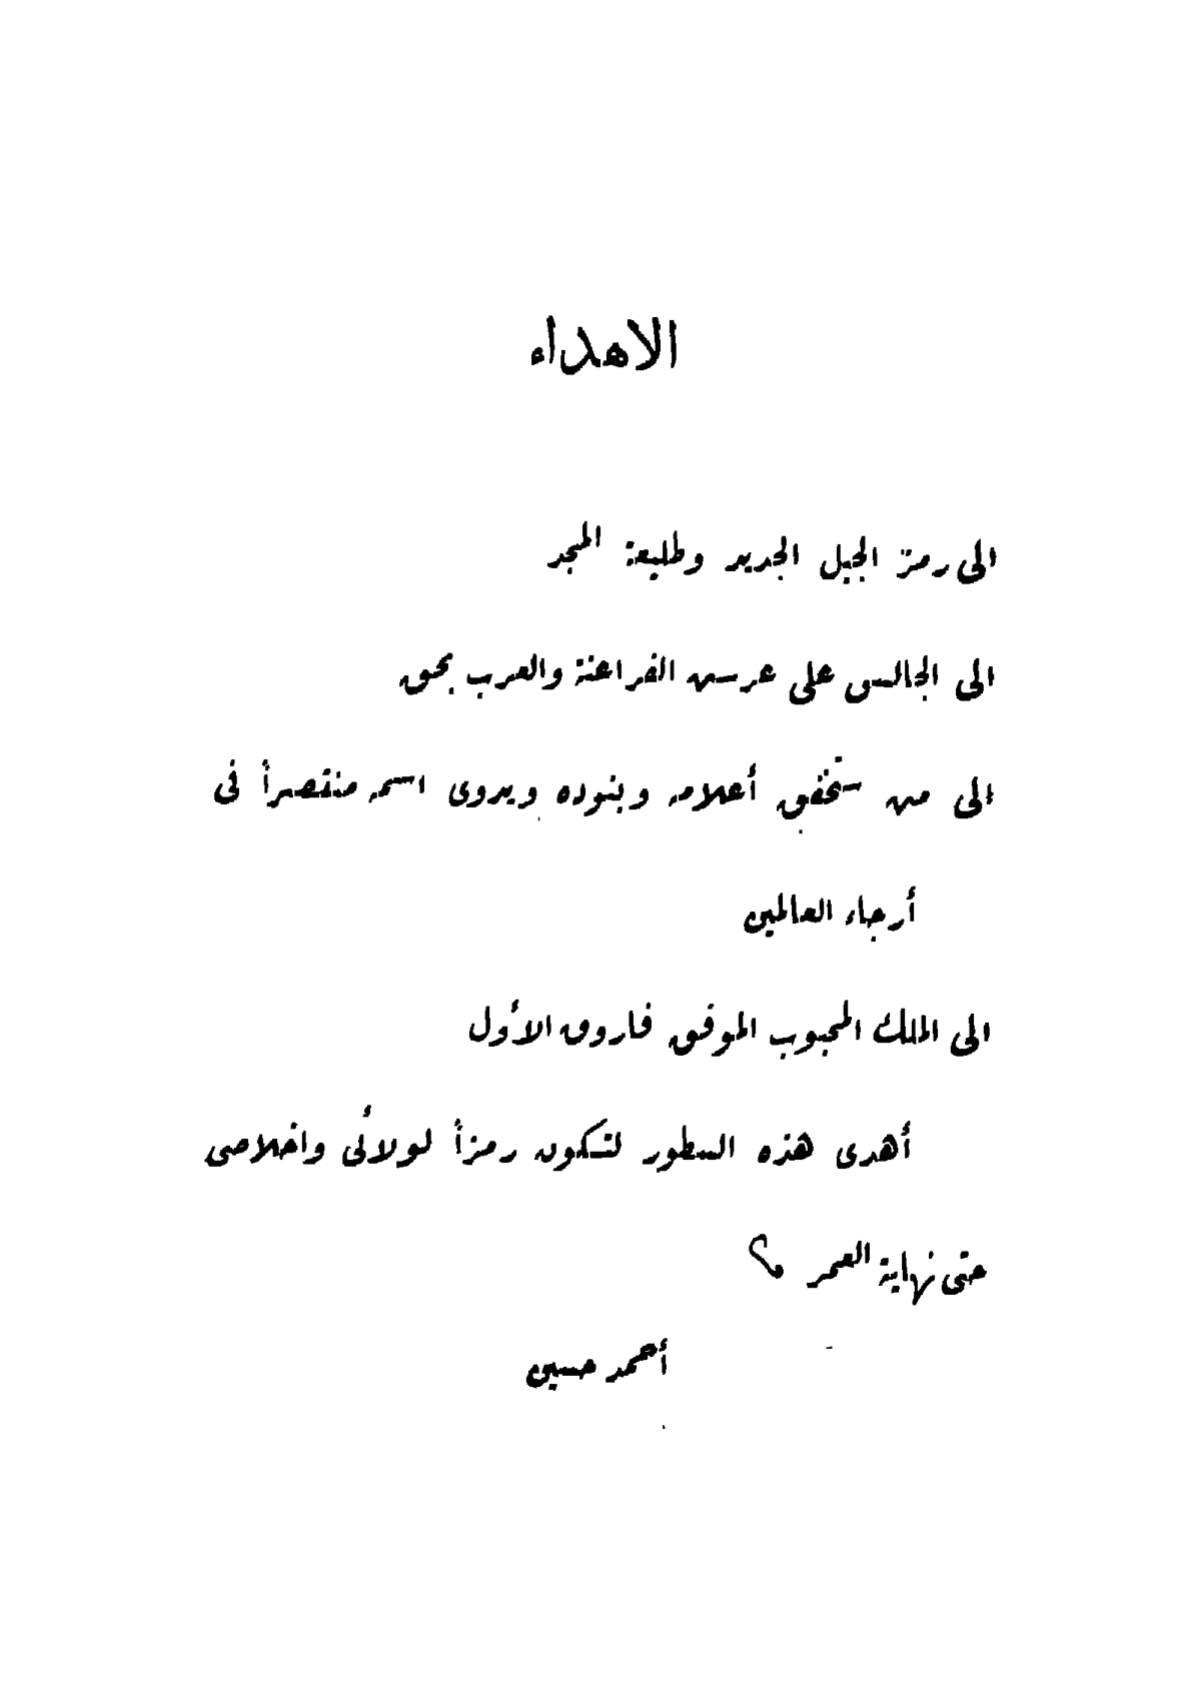 الاهداء
الى رمز الجيل الجديد وطليعة المجد
الى الجالس على عرش الفراعنة والعرب بحق
الى من ستخفق أعلامه وبنوده ويدوى اسمه منتصراً فى
أرجاء العالمين
الى الملك المحبوب الموفق فاروق الأول
أهدى هذه السطور لتكون رمزاً لولائى واخلاصى
حتى نهاية العمر
أحمد حسين